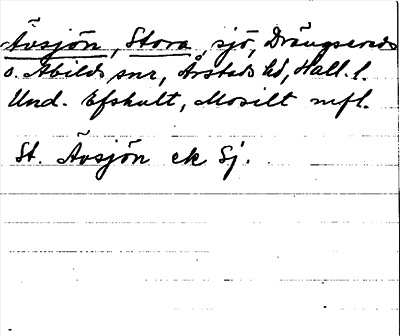 Ävsjön, Stora, sjö, Drängsereds
o. Abilds snr, Årstads hd, Hall. l.
Und. Efshult, Mosilt mfl.
St. Ävsjön ek Sj.